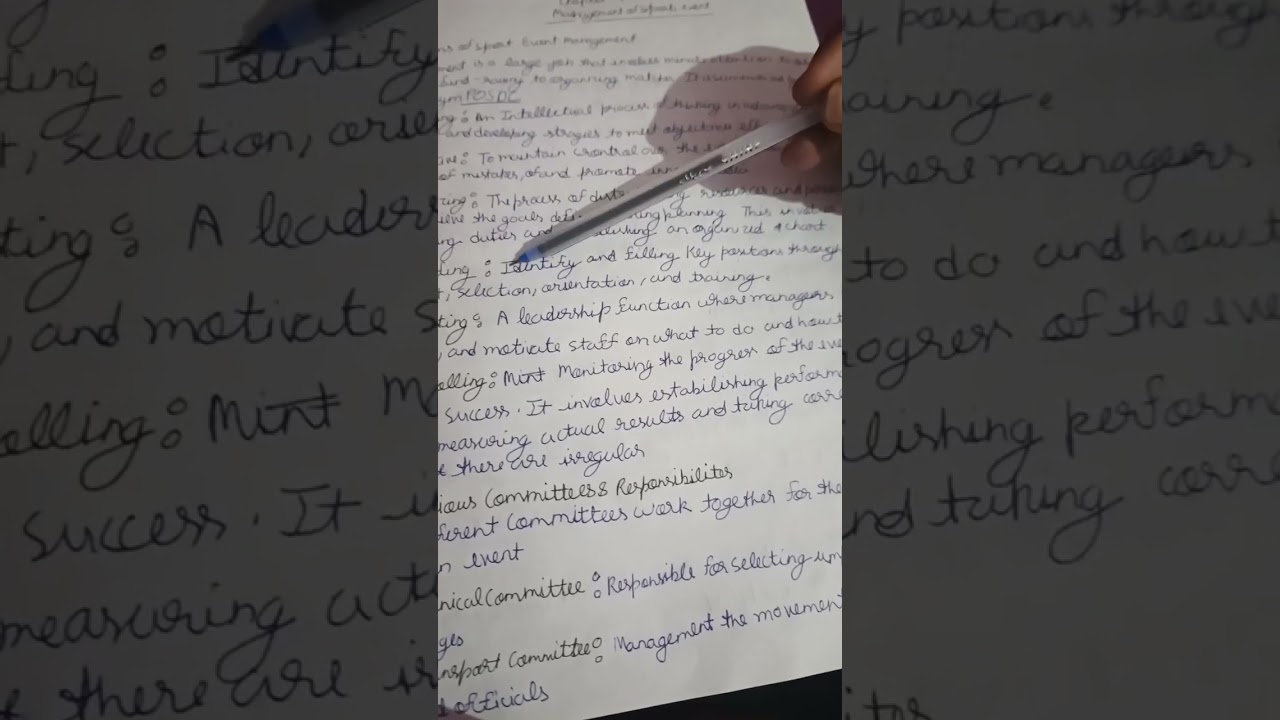 Management of Sports event
ns of Sport Event Management
ment is a large job that involves
fund-raising to organising matche. It is summarised
ym POSDC
ng: An Intellectual process of thinking in advance
and developing stragies to meet objections
ive: To maintain control over the
of mistakes, of and promote
zing: The process of resources and
ieve the goals planning. This invol
ng duties and an organized chart
ding: Identify and filling Key positions through
t, selection, orientation, and training.
ting: A leadership function where managers
, and motivate staff on what to do and how t
olling: Mint Monitoring the progress of the eve
success. It involves estabilishing perform
measuring actual results and taking corre
e there are irregular
ious Committees & Responsibilites
ferent Committees work together for the
n event
nical Committee: Responsible for selecting um
ges
nsport Committee: Management the movement
officials